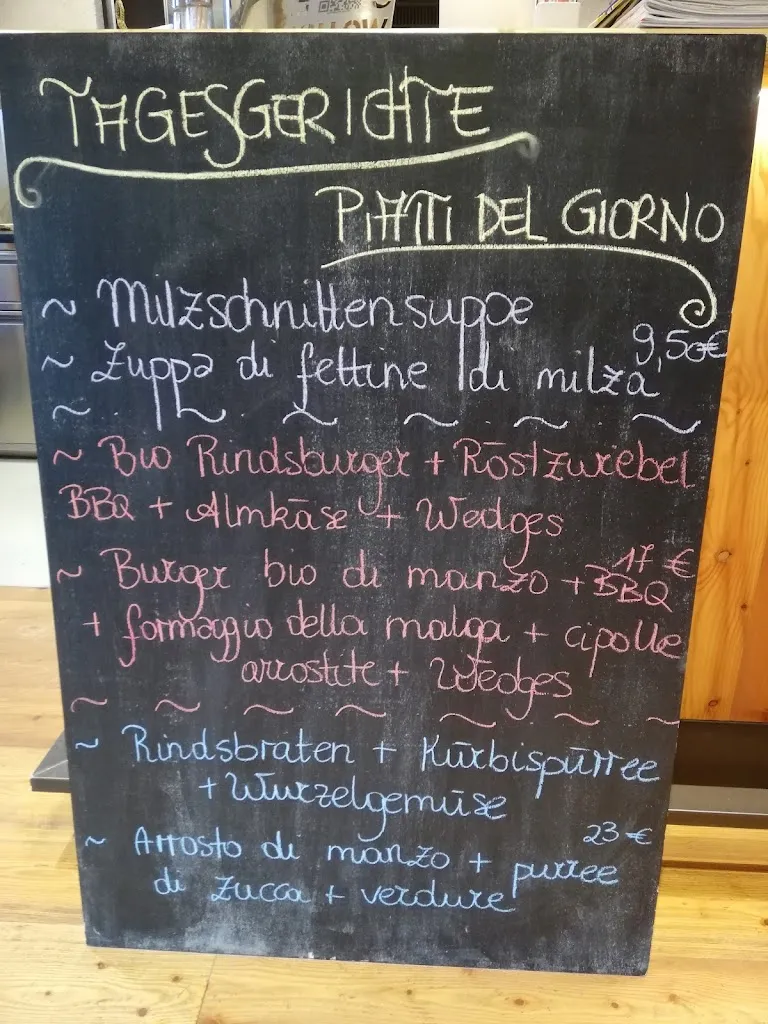 TAGESGERICHTE
PIATTI DEL GIORNO
~ Milzschnittensuppe
9,50€
~ Zuppa di fettine di milza
~ Bio Rindsburger + Röstzwiebel
BBQ + Almkäse + Wedges
17 €
~ Burger bio di manzo + BBQ
+ formaggio della malga + cipolle
arrostite + Wedges
~ Rindsbraten + Kürbispürree
+ Wurzelgemüse
23 €
~ Arrosto di manzo + purree
di zucca + verdure